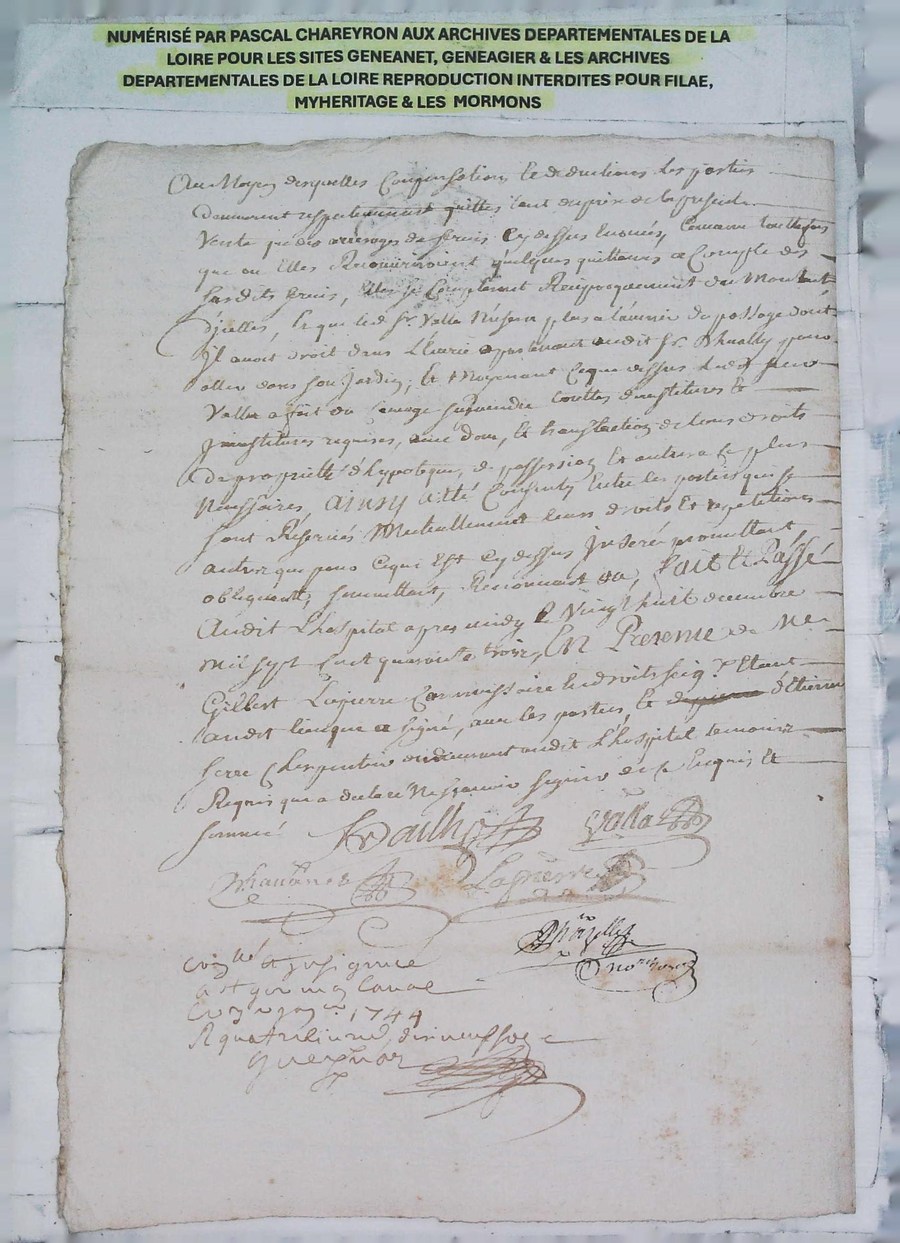 NUMÉRISÉ PAR PASCAL CHAREYRON AUX ARCHIVES DEPARTEMENTALES DE LA
LOIRE POUR LES SITES GENEANET, GENEAGIER & LES ARCHIVES
DEPARTEMENTALES DE LA LOIRE REPRODUCTION INTERDITES POUR FILAE,
MYHERITAGE & LES MORMONS
Au Moyen desquelles Compensation et deductions les parties
demeurent respectivement quittes tant du prix de la presente
Vente que des arrerages de servis cy dessus enoncés, comme touttefois
que ou Elles Recouvriroient quelques quittances a Compte des
susdits servis, Reciproquement du Montant
d'icelles, et que led. Sr. Valla n'usera plus a l'avenir du passage dont
Jl avoit droit dans L'Ecurie apartenant audit Sr. pour
aller dans son Jardin, Et Moyenant ce que dessus led. Sieur
Valla a fait au touttes
requises, avec don, Et translation de tous droits
De proprietté d'hypoteque, de possession Et autres a ce plus
Necessaires, ainsy a été Consenty Entre les parties qui se
sont Reservés Mutuellement leurs droits Et repetitions
autres que pour ce qui Est cy dessus Jnseré promettant
obligeant, soumettant, Renonçant &a, fait Et Passé
Audit L'hospital apres midy le Vingt huit decembre
Mil sept Cent quarante trois, En Presence de Me
Gilbert Lapierre Commissaire En droits seig.x Etant
audit lieu qui a signé, avec les parties, Et d'Etienne
Charpentier demeurant audit L'hospital temoins
Requis qui a declaré Ne sçavoir signer de ce Enquis Et
sommé
Valla
Lapierre
not. royal
Con.llé et
a st germain Laval
1744
R quatre livres dix neuf sols